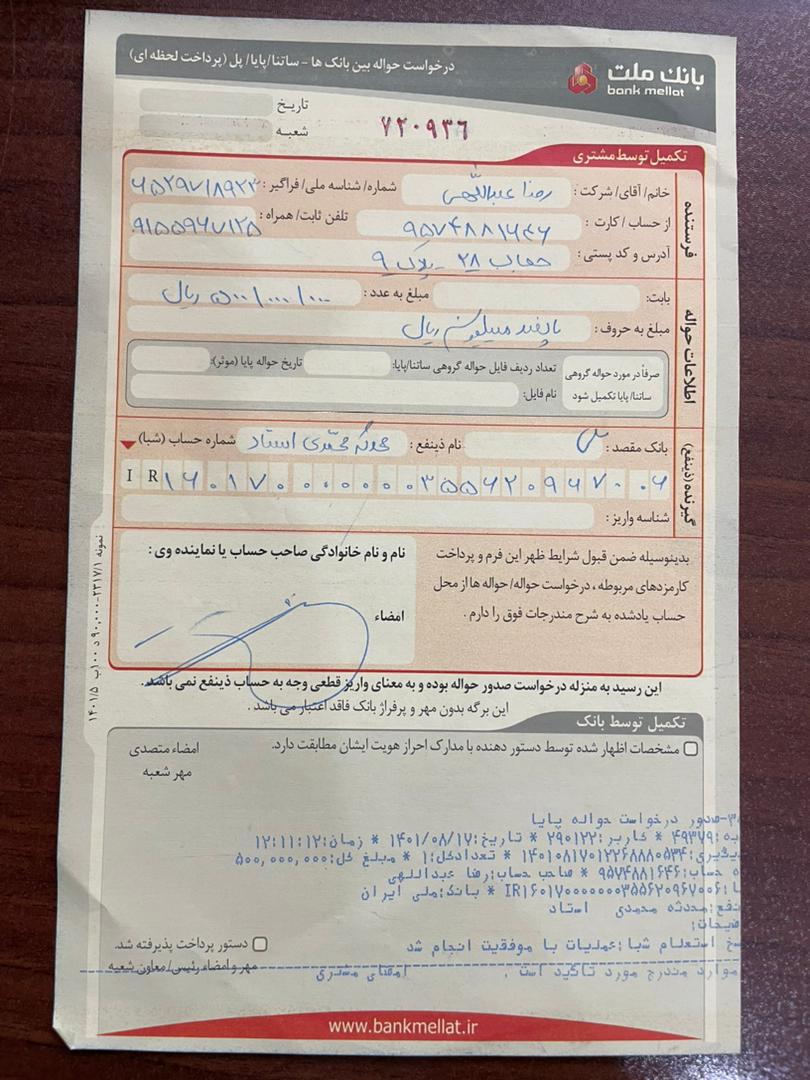 بانک ملت
bank mellat
درخواست حواله بین بانک ها - ساتنا/پایا/ پل (پرداخت لحظه ای)
تاریخ
شعبه
۷۲۰۹۳۶
تکمیل توسط مشتری
فرستنده
خانم/ آقای/ شرکت: رضا عبداللهی شماره/ شناسه ملی/ فراگیر:
از حساب / کارت: ۹۵۷۴۸۸۱۶۴۶ تلفن ثابت/ همراه: ۹۱۵۵۹۶۷۱۲۵
آدرس و کد پستی: ۲۸ - پلاک ۹
اطلاعات حواله
بابت: مبلغ به عدد: ۵۰۰/۰۰۰/۰۰۰ ریال
مبلغ به حروف: پانصد میلیون ریال
صرفاً در مورد حواله گروهی ساتنا/ پایا تکمیل شود
تعداد ردیف فایل حواله گروهی ساتنا/پایا: تاریخ حواله پایا (موثر):
نام فایل:
گیرنده (ذینفع)
بانک مقصد: ملی نام ذینفع: محدثه محمدی استاد شماره حساب (شبا)
IR ۱۶۰۱۷۰۰۰۰۰۰۰۳۵۵۶۲۰۹۶۷۰۰۶
شناسه واریز:
بدینوسیله ضمن قبول شرایط ظهر این فرم و پرداخت
کارمزدهای مربوطه، درخواست حواله/ حواله ها از محل
حساب یادشده به شرح مندرجات فوق را دارم.
نام و نام خانوادگی صاحب حساب یا نماینده وی:
امضاء
این رسید به منزله درخواست صدور حواله بوده و به معنای واریز قطعی وجه به حساب ذینفع نمی باشد.
این برگه بدون مهر و پرفراژ بانک فاقد اعتبار می باشد.
تکمیل توسط بانک
مشخصات اظهار شده توسط دستور دهنده با مدارک احراز هویت ایشان مطابقت دارد.
امضاء متصدی
مهر شعبه
صدور درخواست حواله پایا
۴۹۳۷۹ * کاربر:۲۹۰۱۲۲ * تاریخ:۱۴۰۱/۰۸/۱۷ * زمان:۱۲:۱۱:۱۲
۱۴۰۱۰۸۱۷۰۱۲۲۶۸۸۸۰۵۳۴ * تعدادکل:۱ * مبلغ کل:۵۰۰,۰۰۰,۰۰۰
حساب:۹۵۷۴۸۸۱۶۴۶ * صاحب حساب:رضا عبداللهی
IR۱۶۰۱۷۰۰۰۰۰۰۰۳۵۵۶۲۰۹۶۷۰۰۶ * بانک:ملی ایران
محدثه محمدی استاد
استعلام شبا:عملیات با موفقیت انجام شد
موارد مندرج مورد تاکید است . امضای مشتری
دستور پرداخت پذیرفته شد.
مهر و امضاء رئیس/ معاون شعبه
www.bankmellat.ir